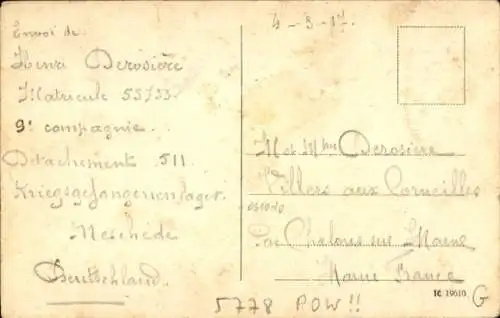 4-3-17.
Envoi de
Henri Derosière
Matricule 55733.
9e compagnie.
Détachement 511
Kriegsgefangenenlager.
Meschede
Deutschland.
M et Mme Derosière
Villers aux Corneilles
Par Chalons sur Marne
Marne France
5778 POW!!
IC 19610
G